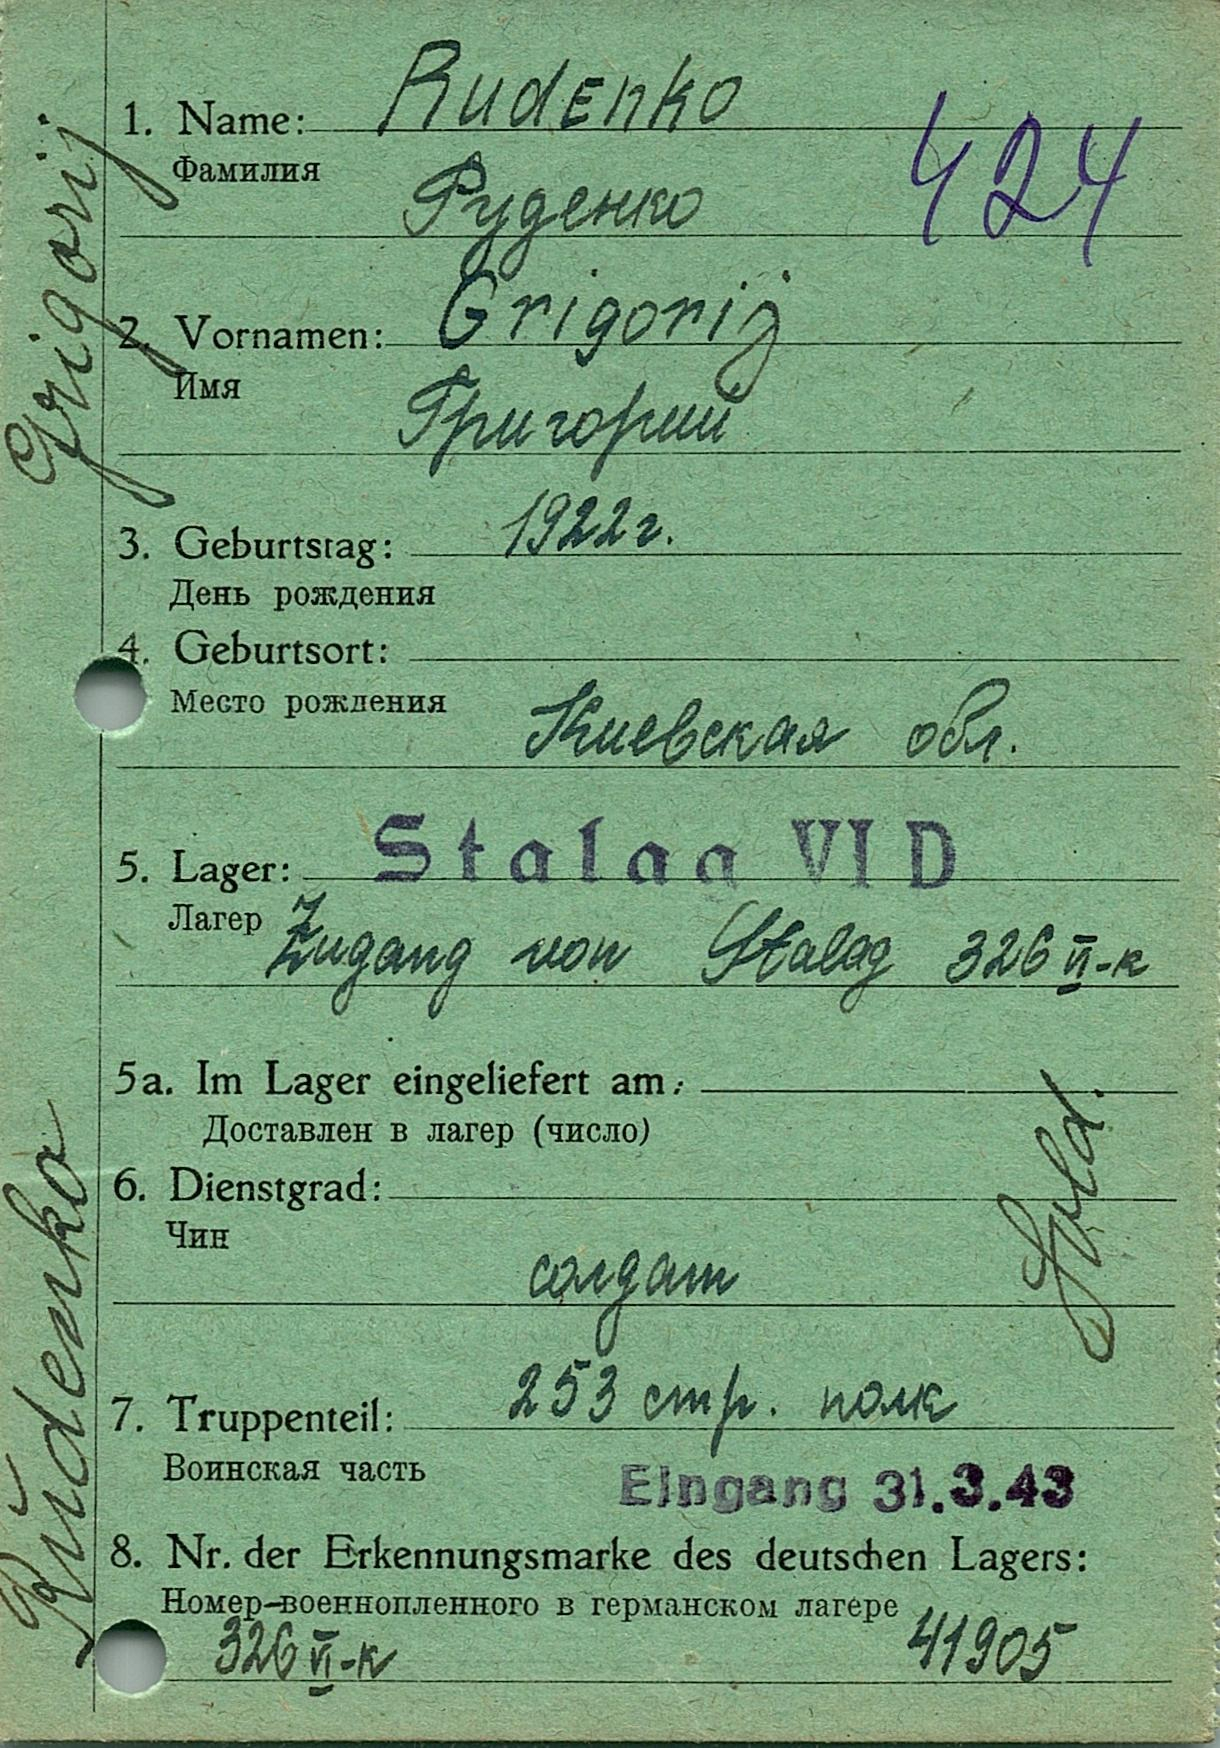 1. Name: Rudenko
Фамилия
Руденко
424
2. Vornamen: Grigorij
Имя
Григорий
3. Geburtstag: 1922 г.
День рождения
4. Geburtsort:
Место рождения
Киевская обл.
5. Lager: Stalag VI D
Лагер
Zugang von Stalag 326 VI-K
5a. Im Lager eingeliefert am:
Доставлен в лагер (число)
6. Dienstgrad:
Чин
солдат
Sold.
7. Truppenteil: 253 стр. полк
Воинская часть
Eingang 31.3.43
8. Nr. der Erkennungsmarke des deutschen Lagers:
Номер военнопленного в германском лагере
326 VI-K 41905
Rŭdenko Grigorij